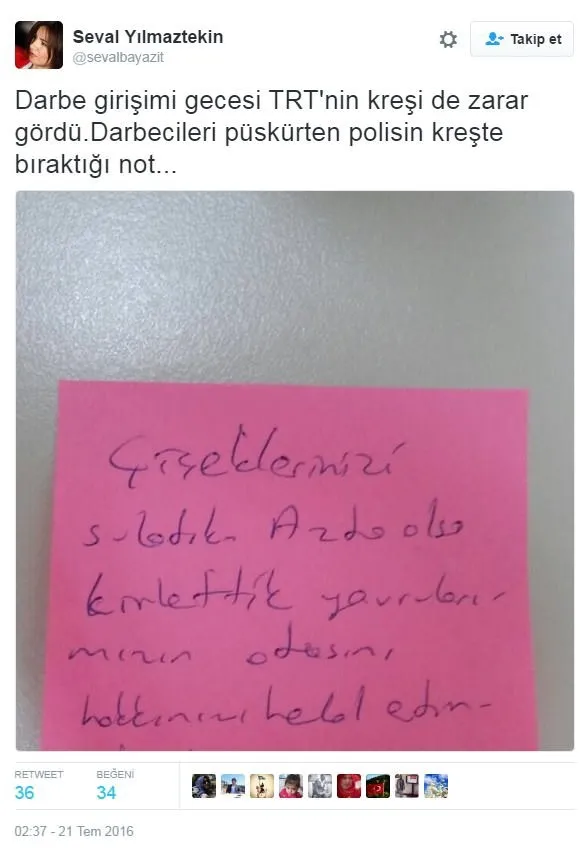 Seval Yılmaztekin
@sevalbayazit
Takip et
Darbe girişimi gecesi TRT'nin kreşi de zarar
gördü.Darbecileri püskürten polisin kreşte
bıraktığı not...
Çiçeklerinizi
suladık Azda olsa
kirlettik yavruları-
mızın odasını
hakkınızı helal edin-
RETWEET
36
BEĞENİ
34
02:37 - 21 Tem 2016